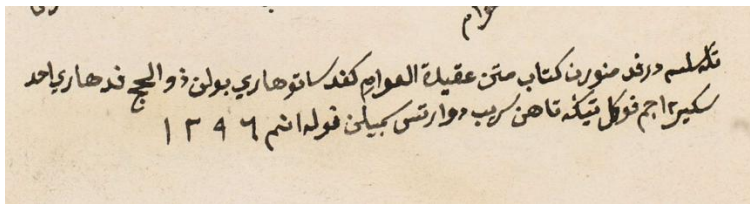 تله سلسه درفد منورن كتاب متن عقيدة العوام كفد ساتو هاري بولن ذوالحج فد هاري احد
سكير٢ جم فوكل تيڬ تاهن سريب دوارتس سمبيلن فوله انم ١٢٩٦